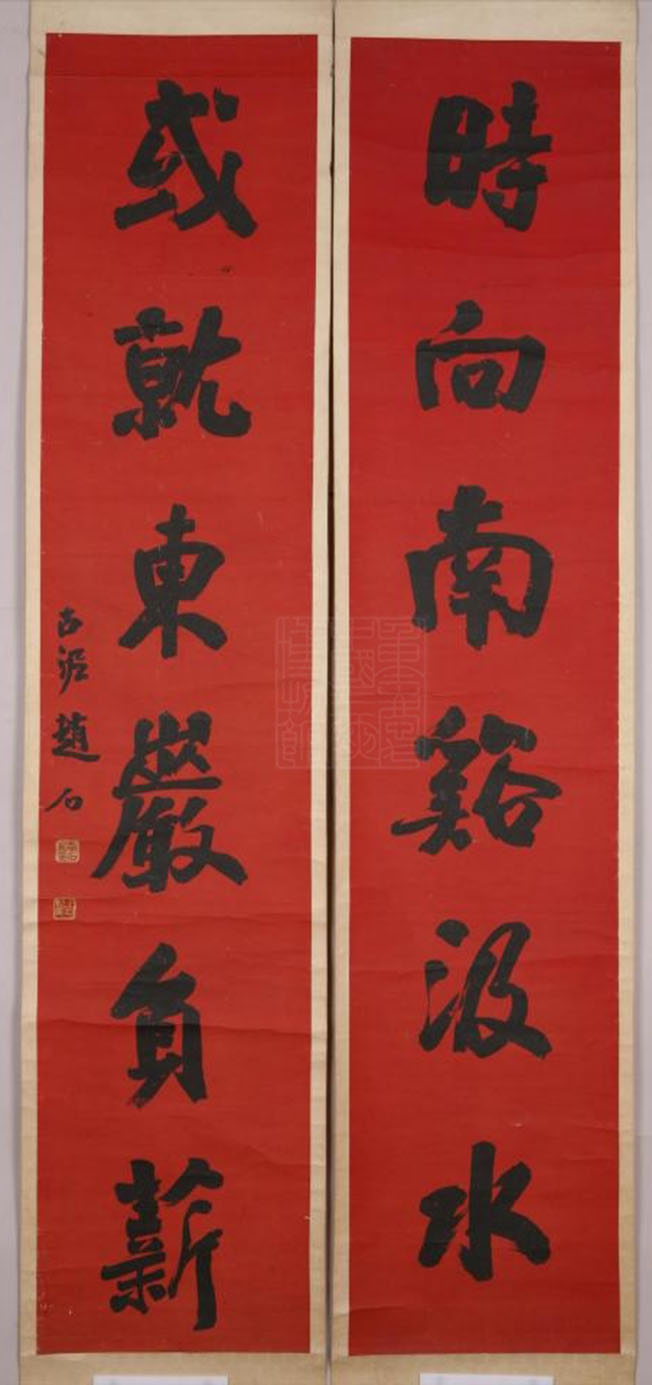 時向南谿汲水
或就東巖負薪
古泥趙石